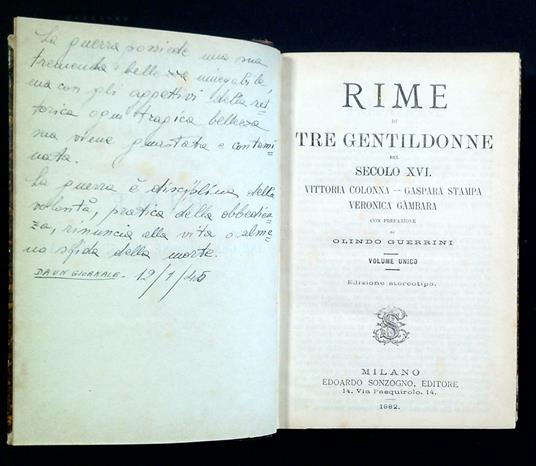 La guerra possiede una sua
tremenda bellezza innegabile,
ma con gli aggettivi della ret=
torica ogni tragica bellezza
ma viene guastata e contami=
nata.
La guerra è disciplina della
volontà, pratica della obbedien=
za, rinuncia alla vita o alme=
no sfida della morte.
DA UN GIORNALE - 19/1/45
RIME
DI
TRE GENTILDONNE
DEL
SECOLO XVI.
VITTORIA COLONNA — GASPARA STAMPA
VERONICA GÀMBARA
CON PREFAZIONE
DI
OLINDO GUERRINI
VOLUME UNICO
Edizione stereotipa.
MILANO
EDOARDO SONZOGNO, EDITORE
14. Via Pasquirolo. 14.
1882.